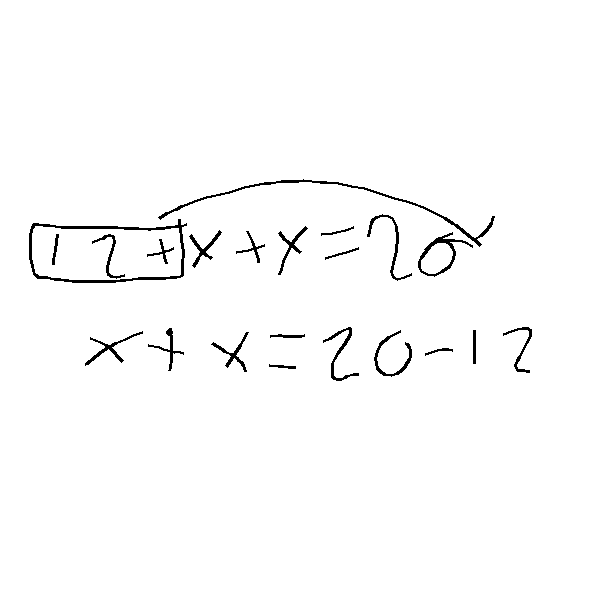 12+x+x=20
x+x=20-12